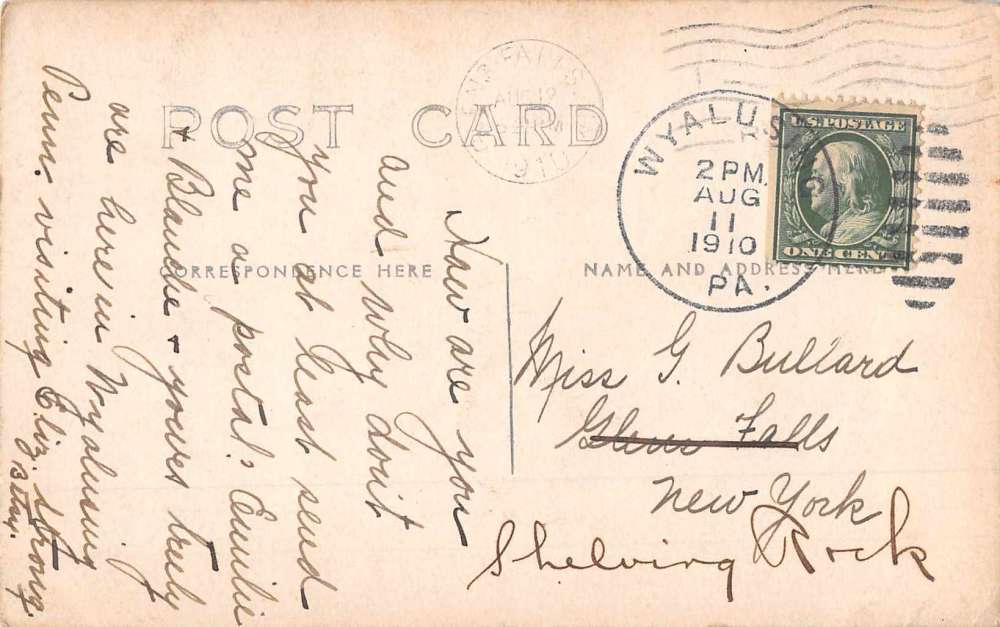 POST CARD
CORRESPONDENCE HERE
NAME AND ADDRESS HERE
FALLS
AUG 12
1910
WYALUSING
2 PM.
AUG
11
1910
PA.
U.S. POSTAGE
ONE CENT
How are you
and why don't
you at least send
me a postal? Emilie
+ Blanche + yours truly
are here in Wyalusing
Penn. visiting Eliz. Strong.
Miss G. Bullard
Glens Falls
New York
Shelving Rock